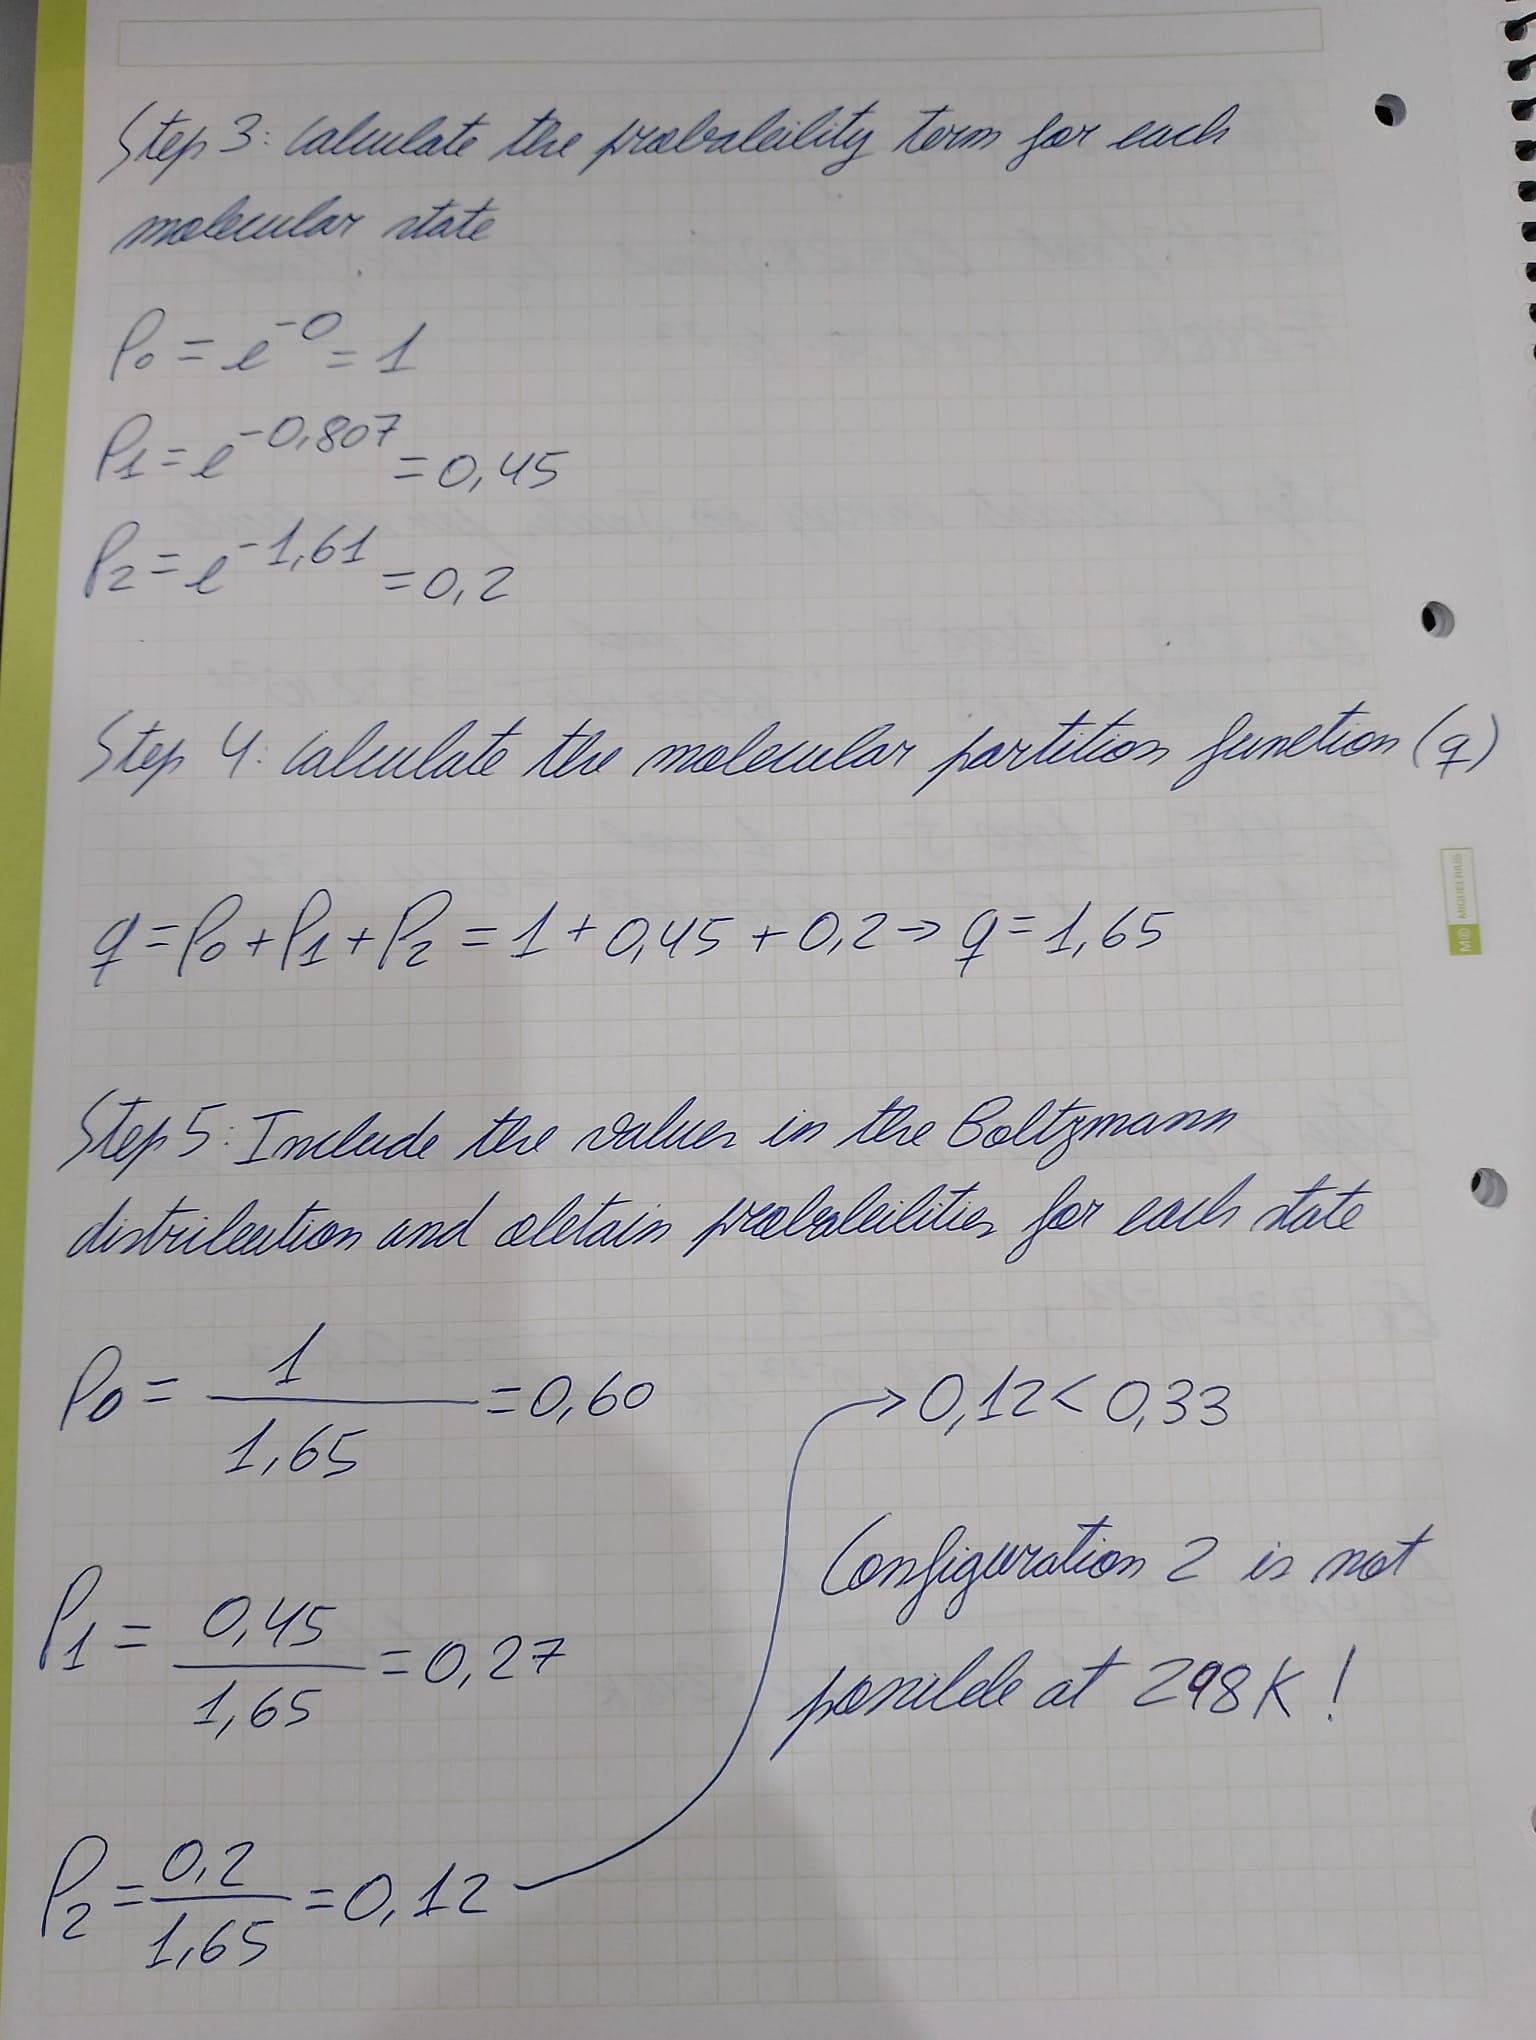 Step 3: Calculate the probability term for each
molecular state
P₀ = e⁻⁰ = 1
P₁ = e^-0,807 = 0,45
P₂ = e^-1,61 = 0,2
Step 4: Calculate the molecular partition function (q)
q = P₀ + P₁ + P₂ = 1 + 0,45 + 0,2 → q = 1,65
MIQUELRIUS
Step 5: Include the values in the Boltzmann
distribution and obtain probabilities for each state
P₀ = 1/1,65 = 0,60
→ 0,12 < 0,33
Configuration 2 is not
possible at 298K!
P₁ = 0,45/1,65 = 0,27
P₂ = 0,2/1,65 = 0,12